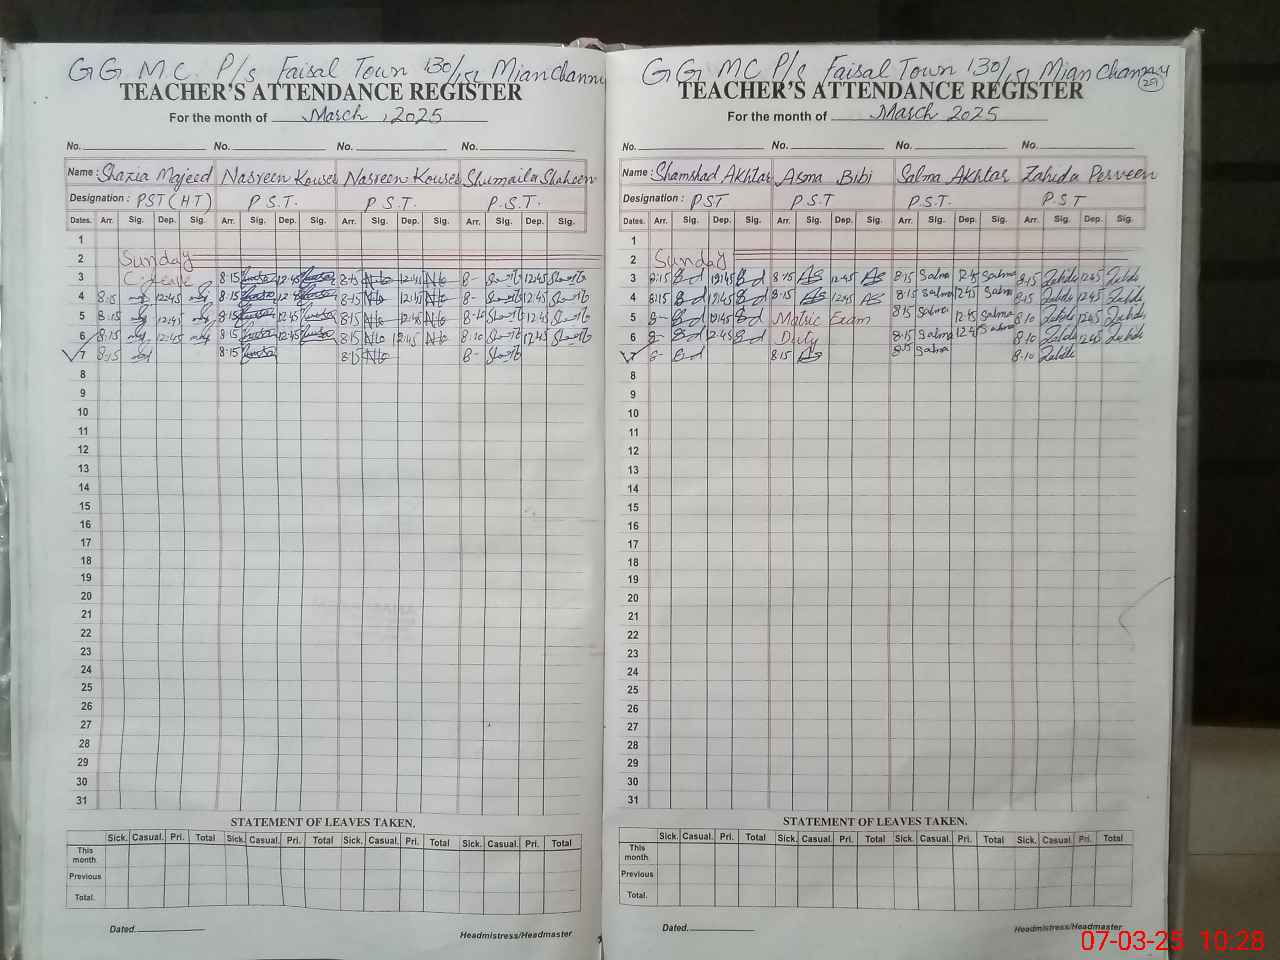 GG MC. P/s Faisal Town 130/15L Mian Channu
TEACHER'S ATTENDANCE REGISTER
For the month of March, 2025
No. No. No. No.
Name : Shazia Majeed Nasreen Kouser Nasreen Kouser Shumaila Shaheen
Designation : PST (HT) P.S.T. P.S.T. P.S.T.
Dates. Arr. Sig. Dep. Sig. Arr. Sig. Dep. Sig. Arr. Sig. Dep. Sig. Arr. Sig. Dep. Sig.
1
2 Sunday
3 C.leave 8:15 12:45 8:15 12:45 8- 12:45
4 8:15 12:45 8:15 12:45 8:15 12:45 8- 12:45
5 8:15 12:45 8:15 12:45 8:15 12:45 8-10 12:45
6 8:15 12:45 8:15 12:45 8:15 12:45 8:10 12:45
7 8:15 8:15 8:15 8-
8
9
10
11
12
13
14
15
16
17
18
19
20
21
22
23
24
25
26
27
28
29
30
31
STATEMENT OF LEAVES TAKEN.
Sick. Casual. Pri. Total Sick. Casual. Pri. Total Sick. Casual. Pri. Total Sick. Casual. Pri. Total
This month
Previous
Total.
Dated.
Headmistress/Headmaster
GG MC P/s Faisal Town 130/15L Mian Channu
29
TEACHER'S ATTENDANCE REGISTER
For the month of March 2025
No. No. No. No.
Name : Shamshad Akhtar Asma Bibi Salma Akhtar Zahida Perveen
Designation : PST P.S.T P.S.T. P.S.T
Dates. Arr. Sig. Dep. Sig. Arr. Sig. Dep. Sig. Arr. Sig. Dep. Sig. Arr. Sig. Dep. Sig.
1
2 Sunday
3 8:15 12:45 8:15 AS 12:45 AS 8:15 Salma 12:45 Salma 8:15 Zahida 12:45 Zahida
4 8:15 12:45 8:15 AS 12:45 AS 8:15 Salma 12:45 Salma 8:15 Zahida 12:45 Zahida
5 8- 12:45 Matric Exam 8:15 Salma 12:45 Salma 8:10 Zahida 12:45 Zahida
6 8- 12:45 Duty 8:15 Salma 12:45 Salma 8:10 Zahida 12:45 Zahida
7 8- 8:15 AS 8:15 Salma 8:10 Zahida
8
9
10
11
12
13
14
15
16
17
18
19
20
21
22
23
24
25
26
27
28
29
30
31
STATEMENT OF LEAVES TAKEN.
Sick. Casual. Pri. Total Sick. Casual. Pri. Total Sick. Casual. Pri. Total Sick. Casual. Pri. Total
This month
Previous
Total.
Dated.
Headmistress/Headmaster
07-03-25 10:28